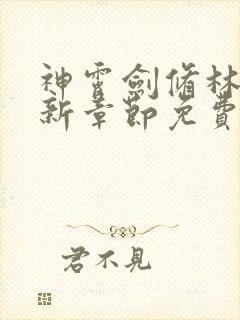 神霄劍脩林
新章節免費
君不見